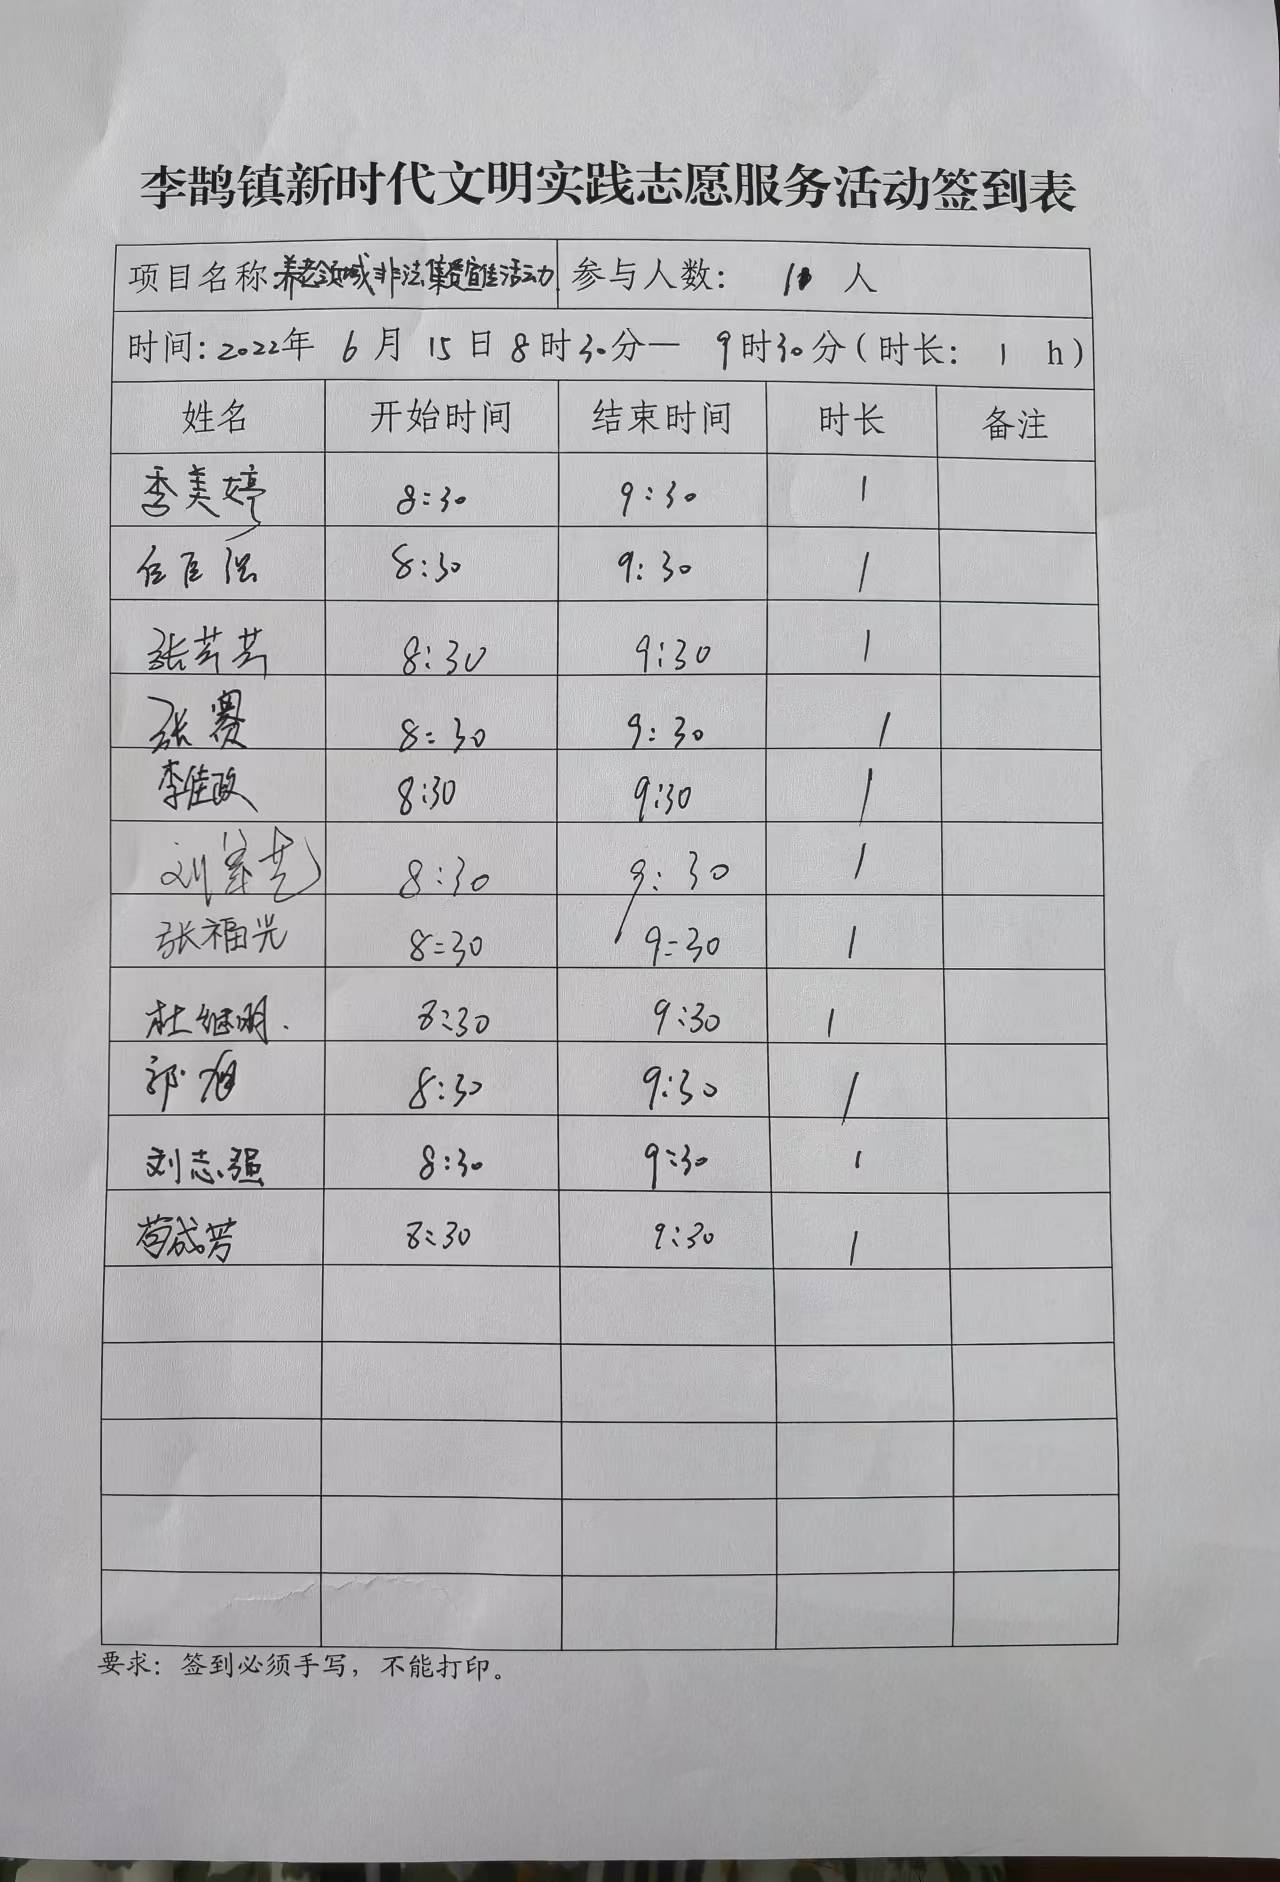 李鹊镇新时代文明实践志愿服务活动签到表
项目名称:养老领域非法集资宣传活动 参与人数: 人
时间:2022年 6 月 15 日 8 时 30分— 9 时30分(时长: 1 h)
姓名 开始时间 结束时间 时长 备注
李美婷 8:30 9:30 1
8:30 9:30 1
张芸芸 8:30 9:30 1
张赛 8:30 9:30 1
李佳政 8:30 9:30 1
刘 8:30 9:30 1
张福兴 8:30 9:30 1
杜继明. 8:30 9:30 1
郭旭 8:30 9:30 1
刘志强 8:30 9:30 1
苟成芳 8:30 9:30 1
要求: 签到必须手写, 不能打印。